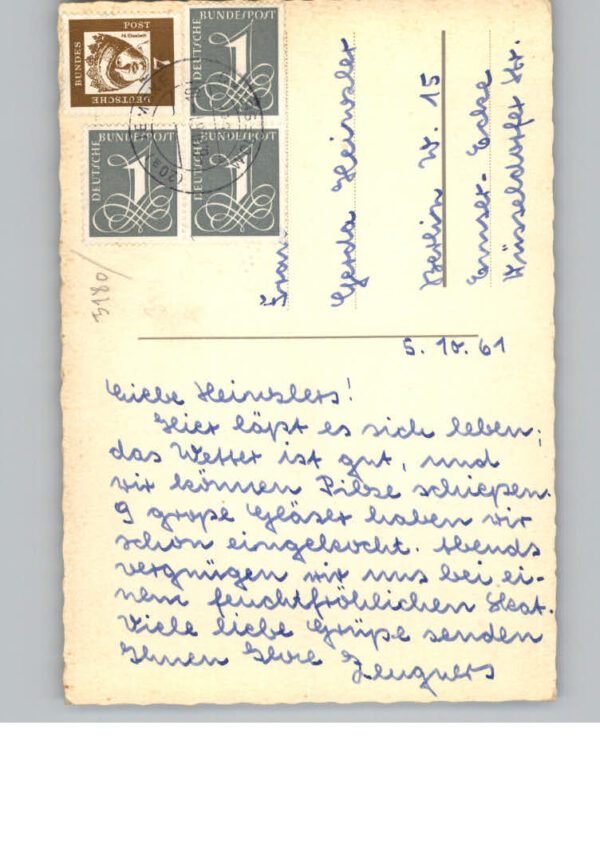 Hl. Elisabeth
DEUTSCHE
BUNDES
POST
7
DEUTSCHE
BUNDESPOST
1
DEUTSCHE
BUNDESPOST
1
DEUTSCHE
BUNDESPOST
1
(20a)
3180/
Frau
Gerda Heinsler
Berlin W. 15
Emser- Ecke
Düsseldorfer Str.
5. 10. 61
Liebe Heinslers!
Hier läßt es sich leben;
das Wetter ist gut, und
wir können Pilse schießen.
9 große Gläser haben wir
schon eingekocht. Abends
vergnügen wir uns bei ei-
nem feuchtfröhlichen Skat.
Viele liebe Grüße senden
Ihnen Ihre Zeugners